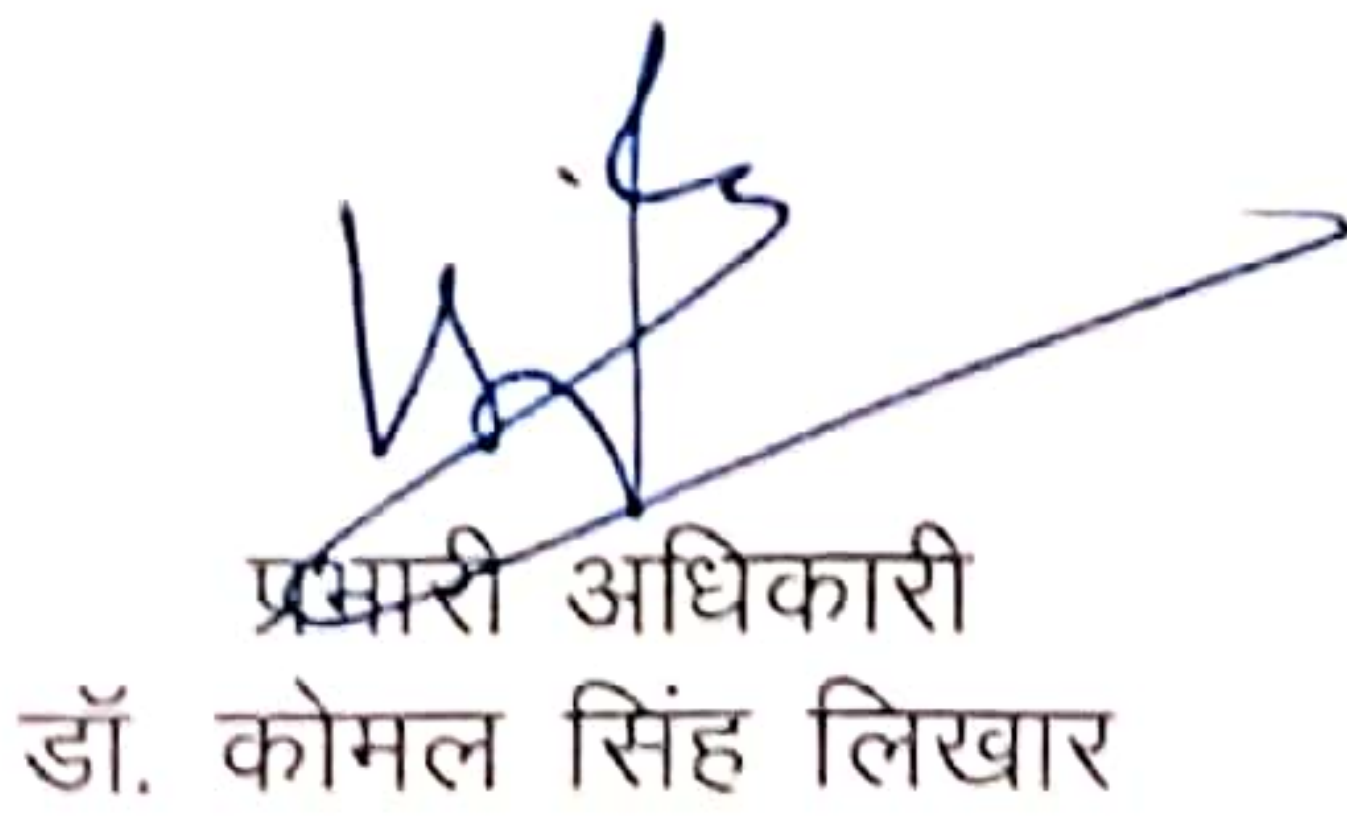 प्रभारी अधिकारी
डॉ. कोमल सिंह लिखार